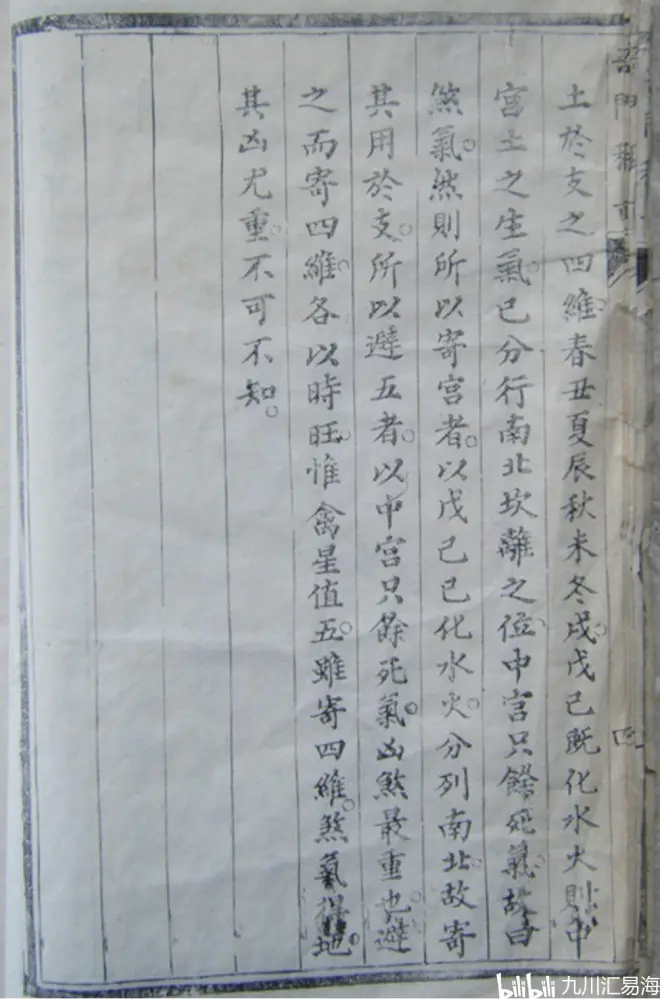 土於支之四維。春丑夏辰秋未冬戌。戊己既化水火則中
宮土之生氣。已分行南北坎離之位。中宮只餘死氣。故曰
煞氣。然則所以寄宮者。以戊己已化水火。分列南北。故寄
其用於支。所以避五者。以中宮只餘死氣。凶煞最重也。避
之而寄四維。各以時旺。惟禽星值五。雖寄四維。煞氣得地。
其凶尤重。不可不知。
四
bilibili 九川汇易海